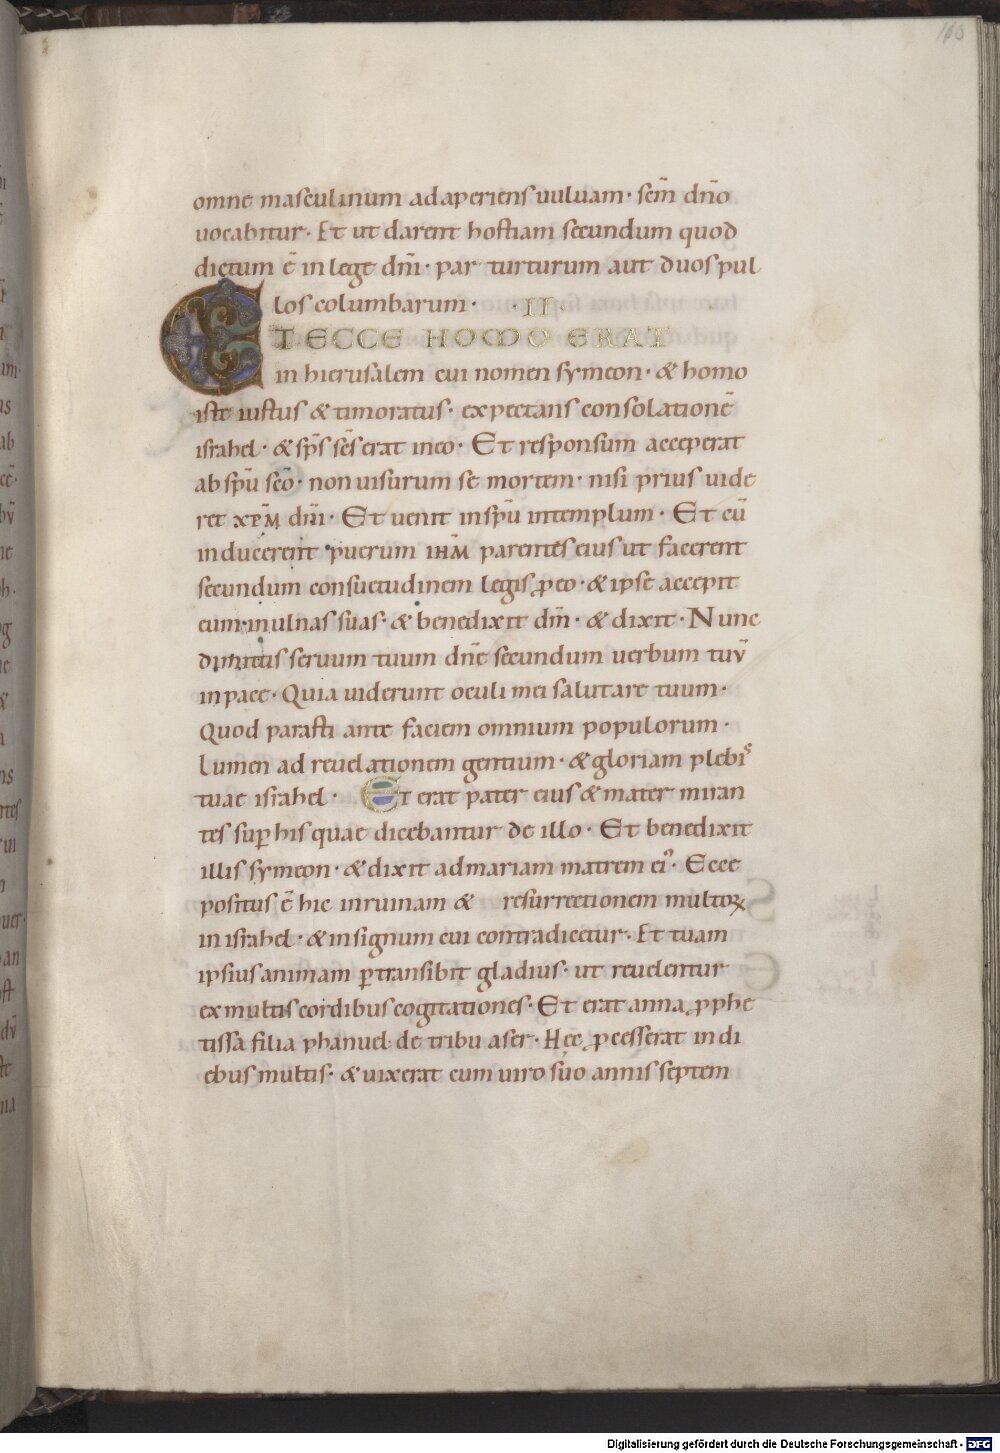 160
omne masculinum adaperiens uuluam· scm̄ dn̄o
uocabitur· Et ut darent hostiam secundum quod
dictum ē in lege dn̄i· par turturum aut duos pul
los columbarum· ·II·
ET ECCE HOMO ERAT
in hierusalem cui nomen symeon· & homo
iste iustus & timoratus· expectans consolationē
israhel· & sp̄s sc̄s erat in eo· Et responsum acceperat
ab sp̄u sc̄o· non uisurum se mortem· nisi prius uide
ret xp̄m dn̄i· Et uenit in sp̄u in templum· Et cū
inducerent puerum ihm̄ parentes eius ut facerent
secundum consuetudinem legis ꝓ eo· & ipse accepit
eum in ulnas suas· & benedixit dm̄· & dixit· Nunc
dimittis seruum tuum dn̄e secundum uerbum tuū
in pace· Quia uiderunt oculi mei salutare tuum·
Quod parasti ante faciem omnium populorum·
Lumen ad reuelationem gentium· & gloriam plebis
tuae israhel· Et erat pater eius & mater miran
tes suꝑ his quae dicebantur de illo· Et benedixit
illis symeon· & dixit ad mariam matrem ei᾽· Ecce
positus ē hic in ruinam & resurrectionem multoꝝ
in israhel· & in signum cui contradicetur· Et tuam
ipsius animam ꝑtransibit gladius· ut reuelentur
ex multis cordibus cogitationes· Et erat anna ꝓphe
tissa filia phanuel· de tribu aser· Hęc ꝓcesserat in di
ebus multis· & uixerat cum uiro suo annis septem
Digitalisierung gefördert durch die Deutsche Forschungsgemeinschaft - DFG